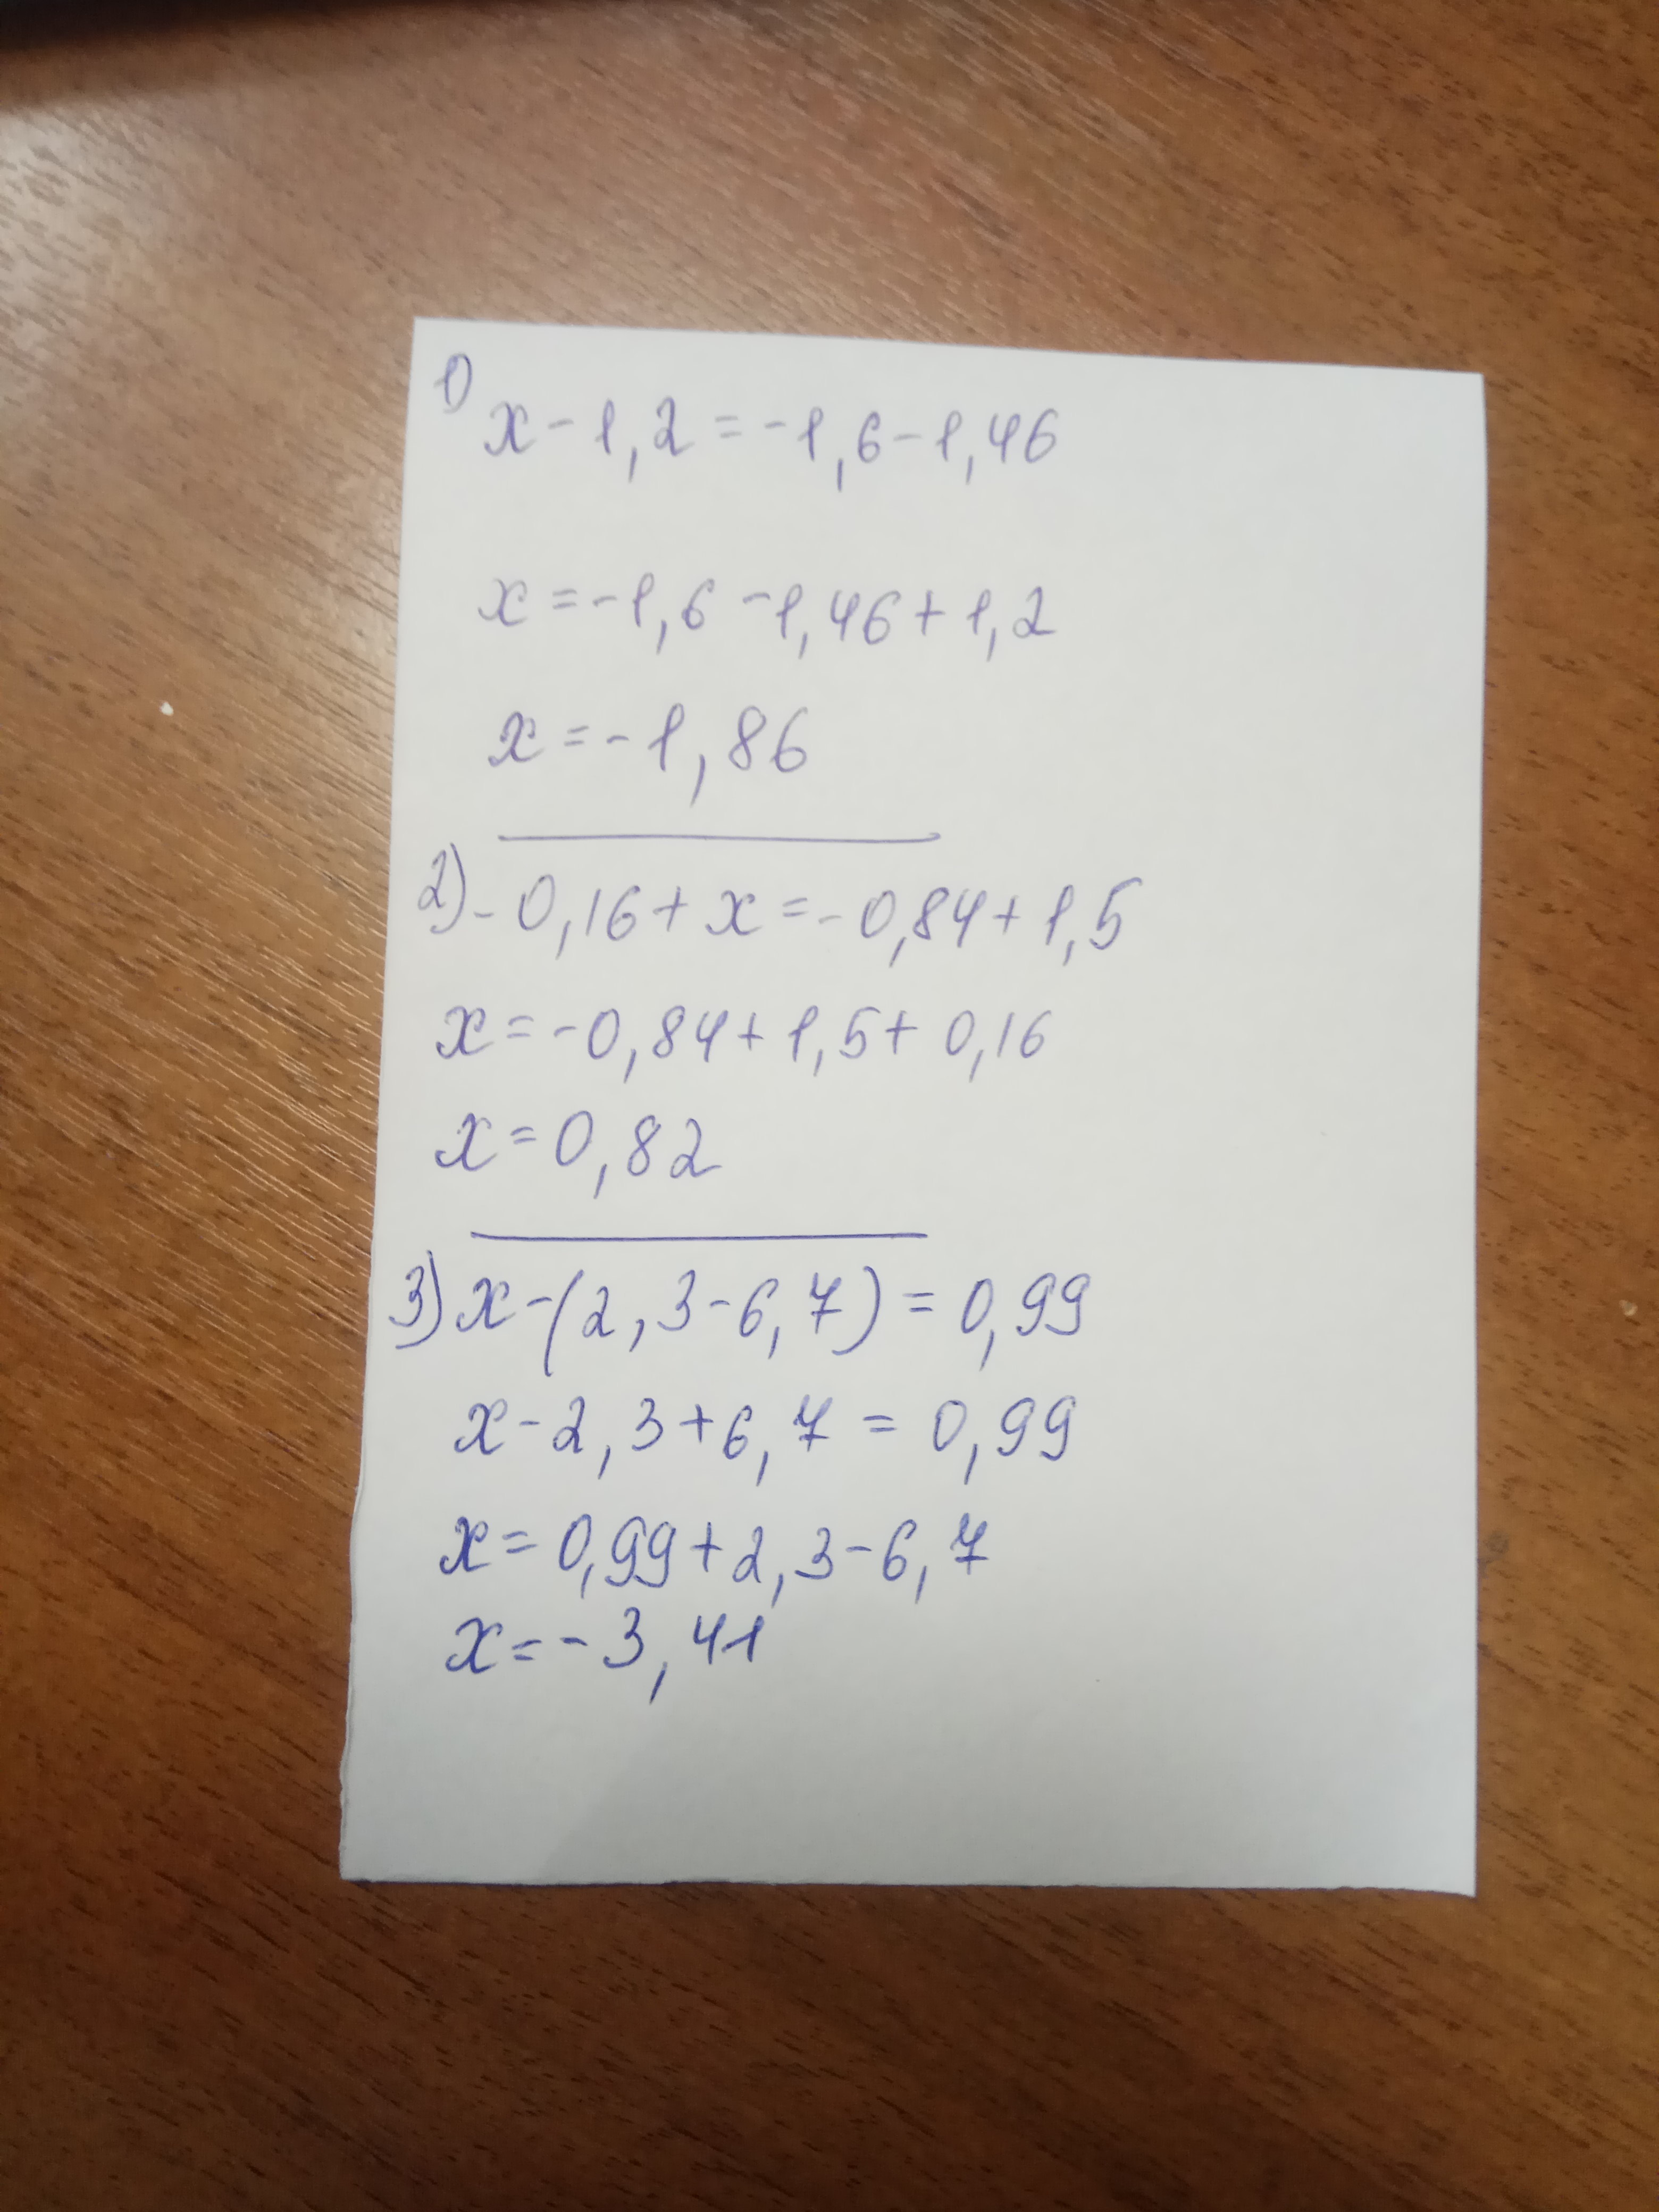 1)
x - 1,2 = -1,6 - 1,46
x = -1,6 - 1,46 + 1,2
x = -1,86
2) -0,16 + x = -0,84 + 1,5
x = -0,84 + 1,5 + 0,16
x = 0,82
3) x - (2,3 - 6,7) = 0,99
x - 2,3 + 6,7 = 0,99
x = 0,99 + 2,3 - 6,7
x = -3,41